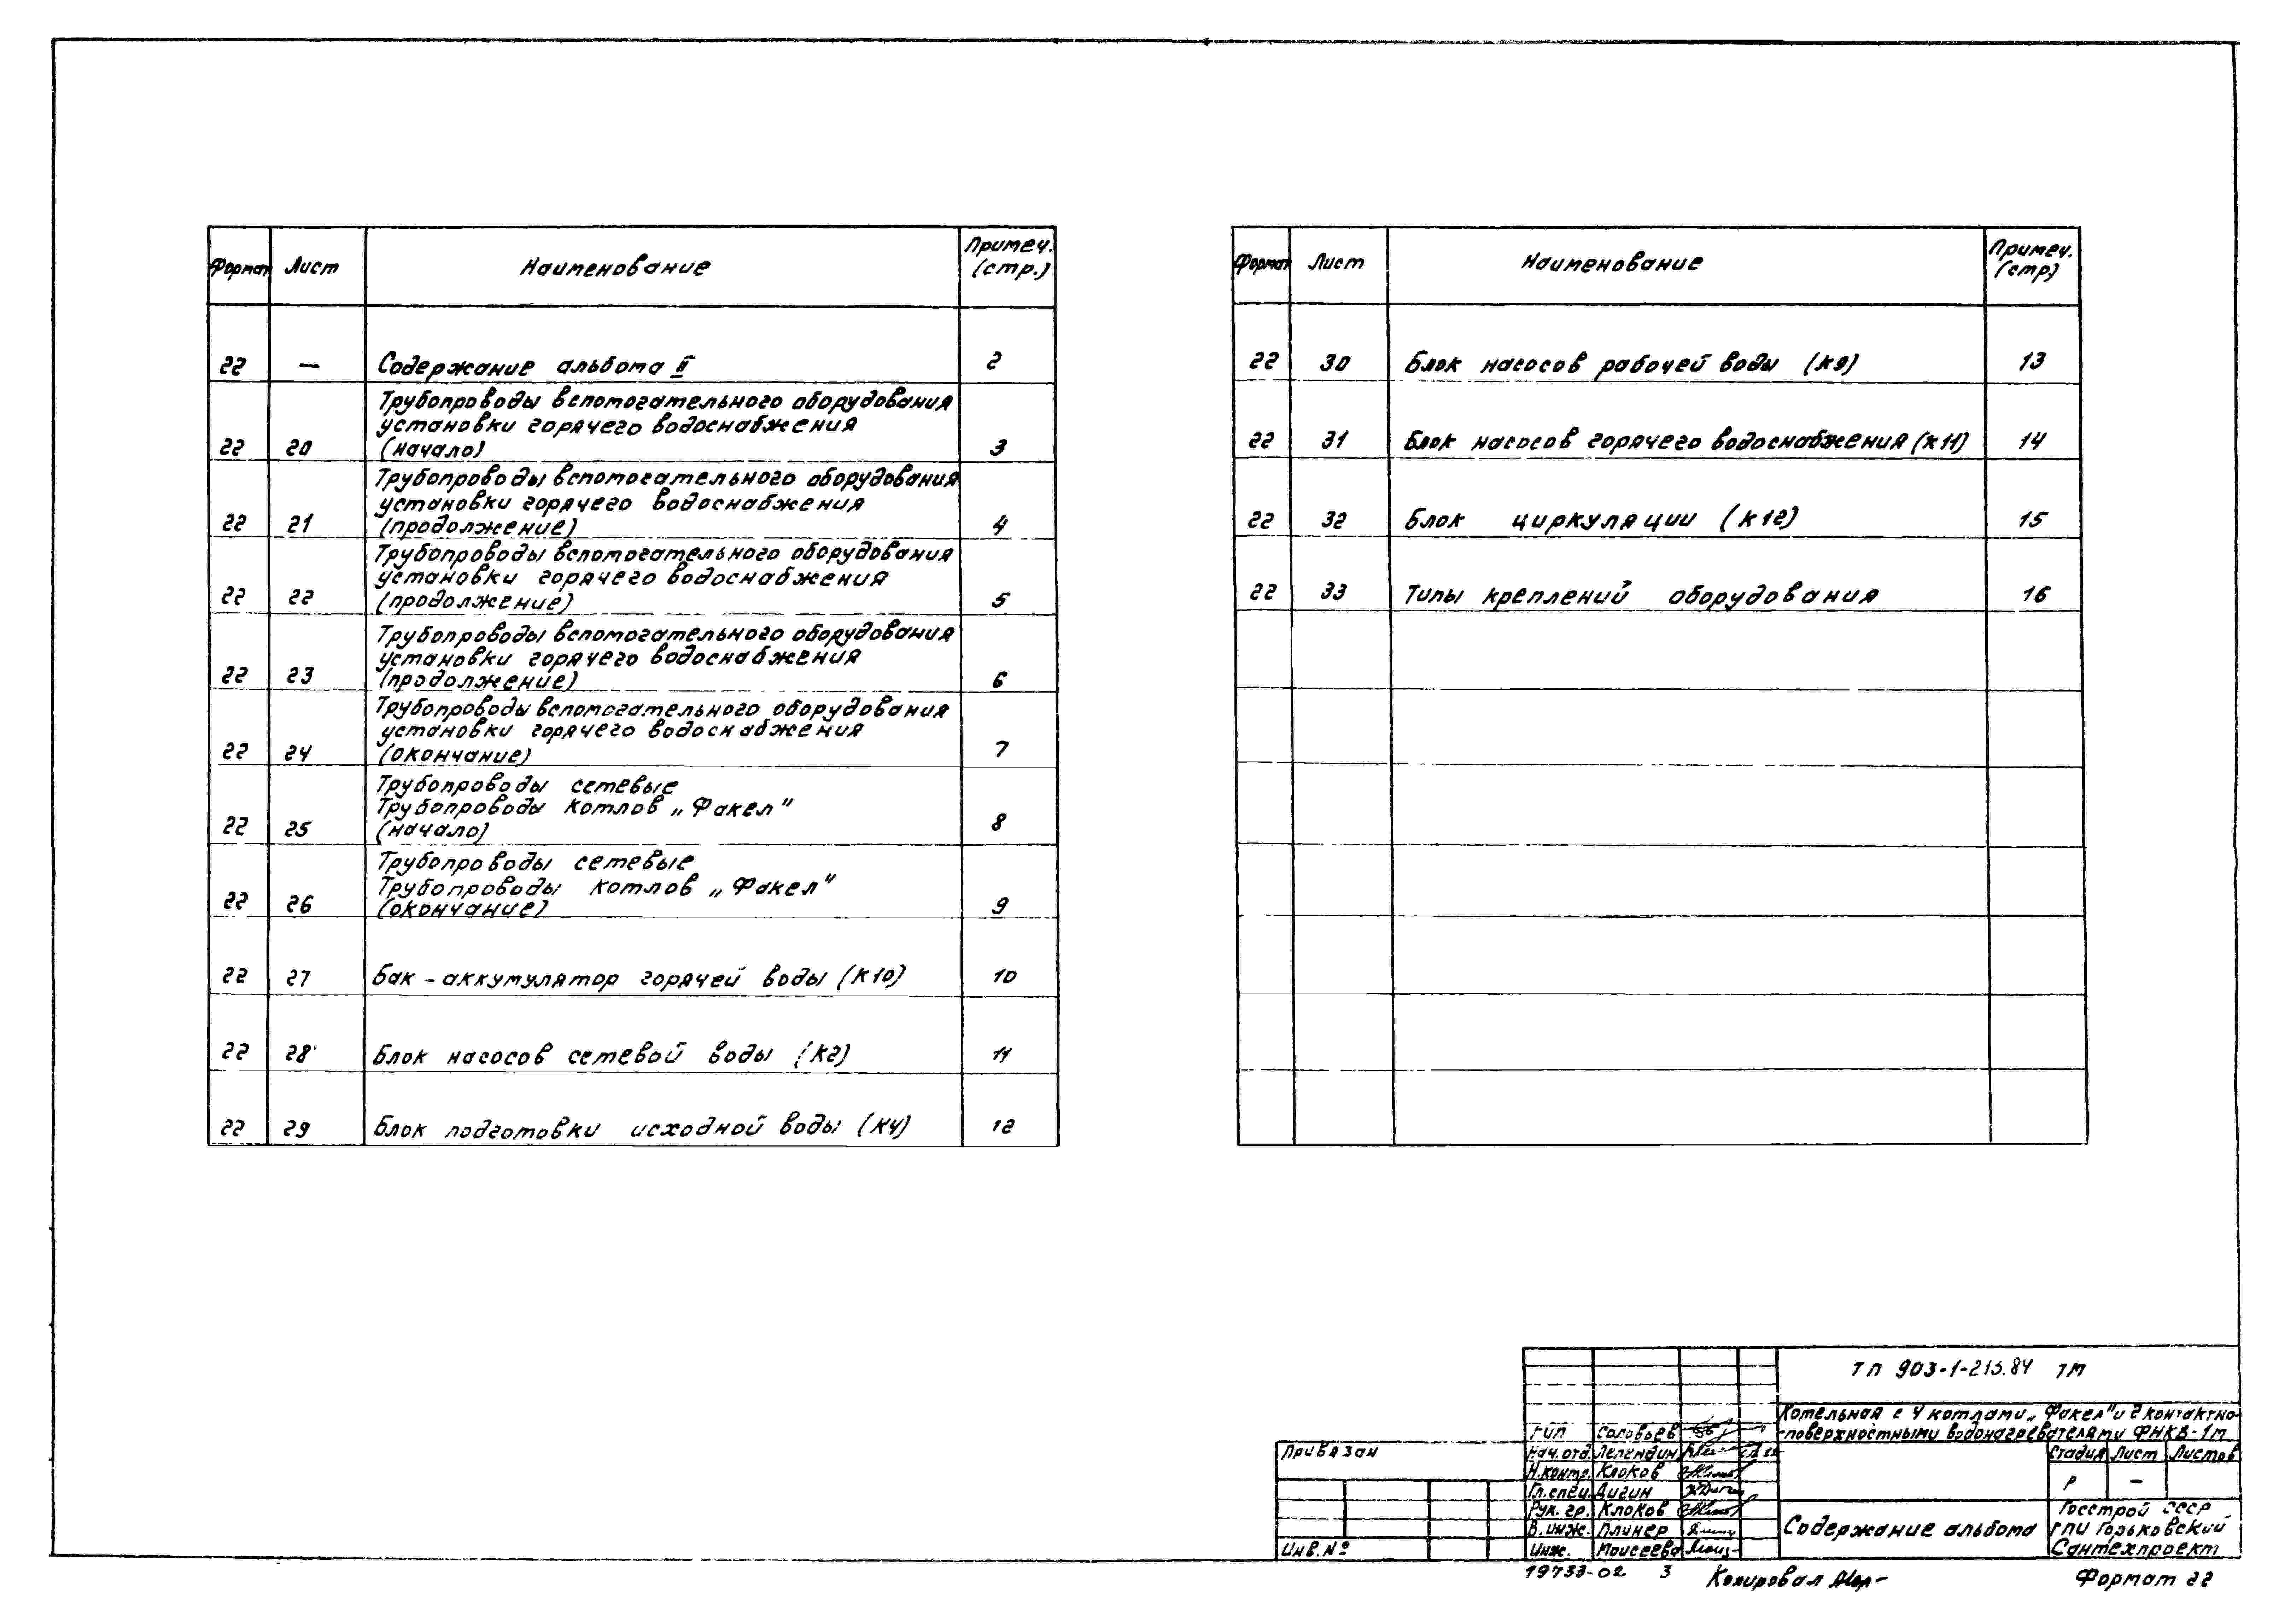 Формат Лист Наименование Примеч. (стр.)
22 — Содержание альбома II 2
Трубопроводы вспомогательного оборудования
установки горячего водоснабжения
22 20 (начало) 3
Трубопроводы вспомогательного оборудования
установки горячего водоснабжения
22 21 (продолжение) 4
Трубопроводы вспомогательного оборудования
установки горячего водоснабжения
22 22 (продолжение) 5
Трубопроводы вспомогательного оборудования
установки горячего водоснабжения
22 23 (продолжение) 6
Трубопроводы вспомогательного оборудования
установки горячего водоснабжения
22 24 (окончание) 7
Трубопроводы сетевые
Трубопроводы котлов „Факел"
22 25 (начало) 8
Трубопроводы сетевые
Трубопроводы котлов „Факел"
22 26 (окончание) 9
22 27 Бак-аккумулятор горячей воды (К10) 10
22 28 Блок насосов сетевой воды (К2) 11
22 29 Блок подготовки исходной воды (К4) 12
Формат Лист Наименование Примеч. (стр)
22 30 Блок насосов рабочей воды (К9) 13
22 31 Блок насосов горячего водоснабжения (К11) 14
22 32 Блок циркуляции (К12) 15
22 33 Типы креплений оборудования 16
ТП 903-1-215.84 ТМ
Котельная с 4 котлами „Факел" и 2 контактно-
-поверхностными водонагревателями ФНКВ-1м
Привязан
Инв.№
ГИП Соловьев
Нач.отд. Лелендин
Н.контр. Клоков
Гл.спец. Дигин
Рук.гр. Клоков
В.инж. Плинер
Инж. Моисеева
Стадия Лист Листов
Р —
Содержание альбома
Госстрой СССР
ГПИ Горьковский
Сантехпроект
19733-02 3
Копировал
Формат 22